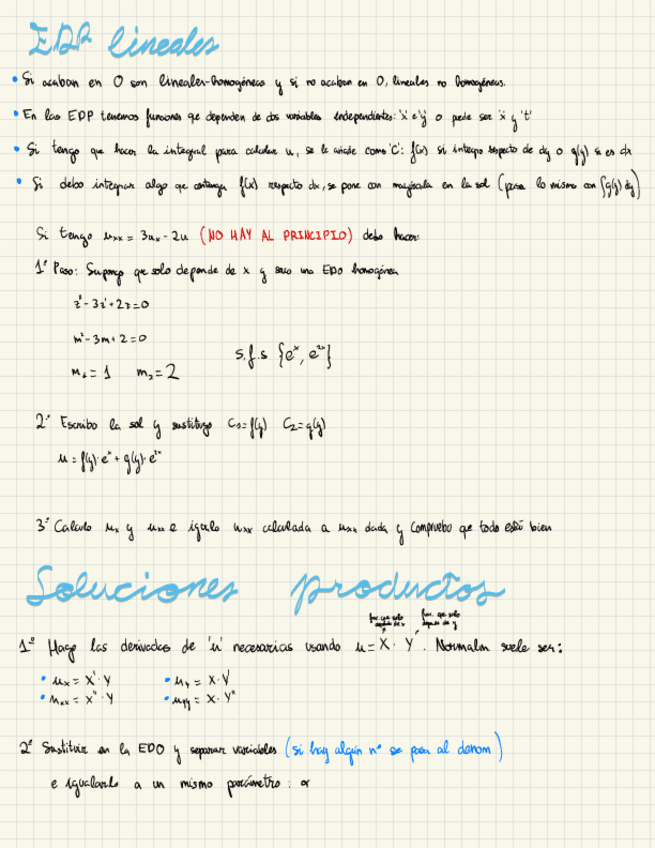 EDP lineales
• Si acaban en 0 son lineales-homogéneas y si no acaban en 0, lineales no homogéneas.
• En las EDP tenemos funciones qe dependen de dos variables independientes: 'x' e 'y' o pede ser 'x' y 't'
• Si tengo que hacer la integral para calcular u, se le añade como 'C': f(x) si integro respecto de dy o g(y) si es dx
• Si debo integrar algo qe contenga f(x) respecto dx, se pone con mayúscula en la sol (pasa lo mismo con ∫g(y) dy)
Si tengo uxx = 3ux - 2u (NO HAY AL PRINCIPIO) debo hacer:
1º Paso: Supongo que solo depende de x y saco una EDO homogénea
z'' - 3z' + 2z = 0
m² - 3m + 2 = 0
m₁ = 1 m₂ = 2 s.f.s {eˣ, e²ˣ}
2º Escribo la sol y sustituyo C₁ = f(y) C₂ = g(y)
u = f(y)·eˣ + g(y)·e²ˣ
3º Calculo ux y uxx e igualo uxx calculada a uxx dada y compruebo que todo esté bien
Soluciones productos
func. que solo depende de x func. que solo depende de y
1º Hago las derivadas de 'u' necesarias usando u = X · Y. Normalm suele ser:
• ux = X' · Y • uy = X · Y'
• uxx = X'' · Y • uyy = X · Y''
2º Sustituir en la EDO y separar variables (si hay algún nº se pasa al denom)
e igualarlo a un mismo parámetro: α